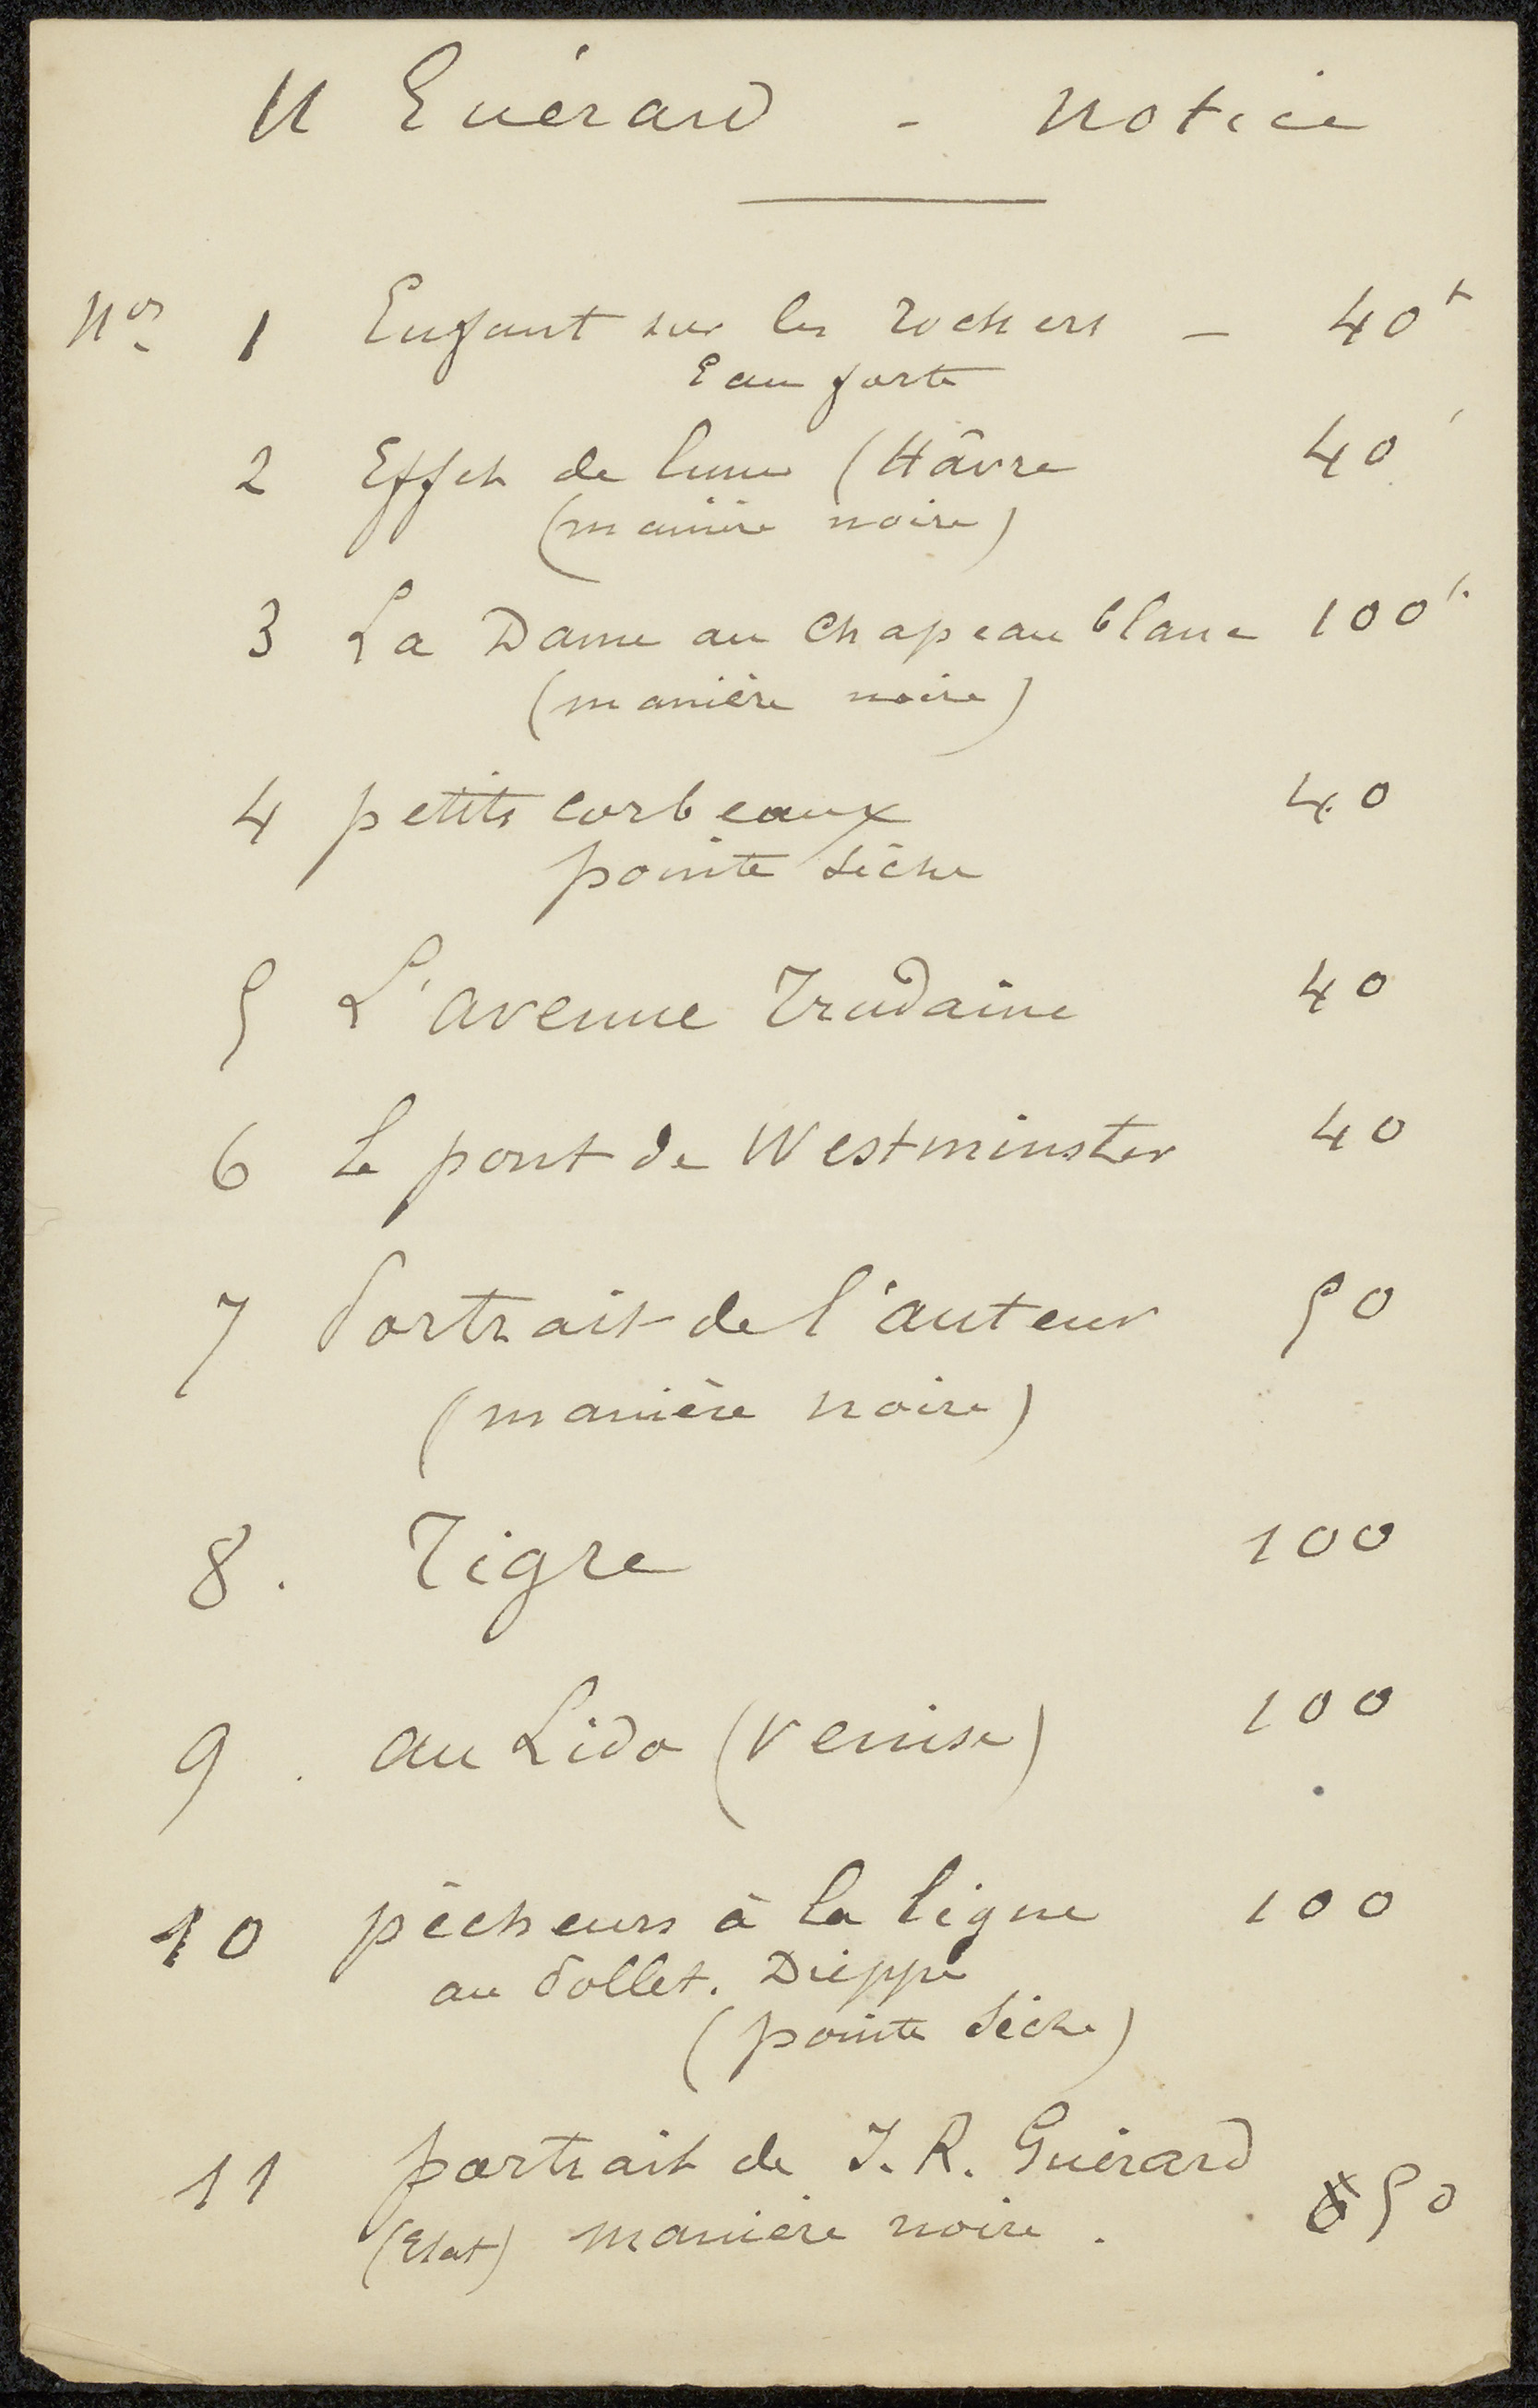 H Guérard - Notice
Nos 1 Enfant sur les rochers — 40f
Eau forte
2 Effet de lune (Hâvre 40f
(manière noire)
3 La Dame au Chapeau blanc 100f.
(manière noire)
4 petits corbeaux 40
pointe sèche
5 L'avenue Trudaine 40
6 Le pont de Westminster 40
7 Portrait de l'auteur 50
(manière noire)
8. Tigre 100
9. au Lido (Venise) 100
10 pêcheurs à la ligne 100
au Pollet. Dieppe
(pointe sèche)
11 portrait de J. R. Guérard 50
(Etat) manière noire.